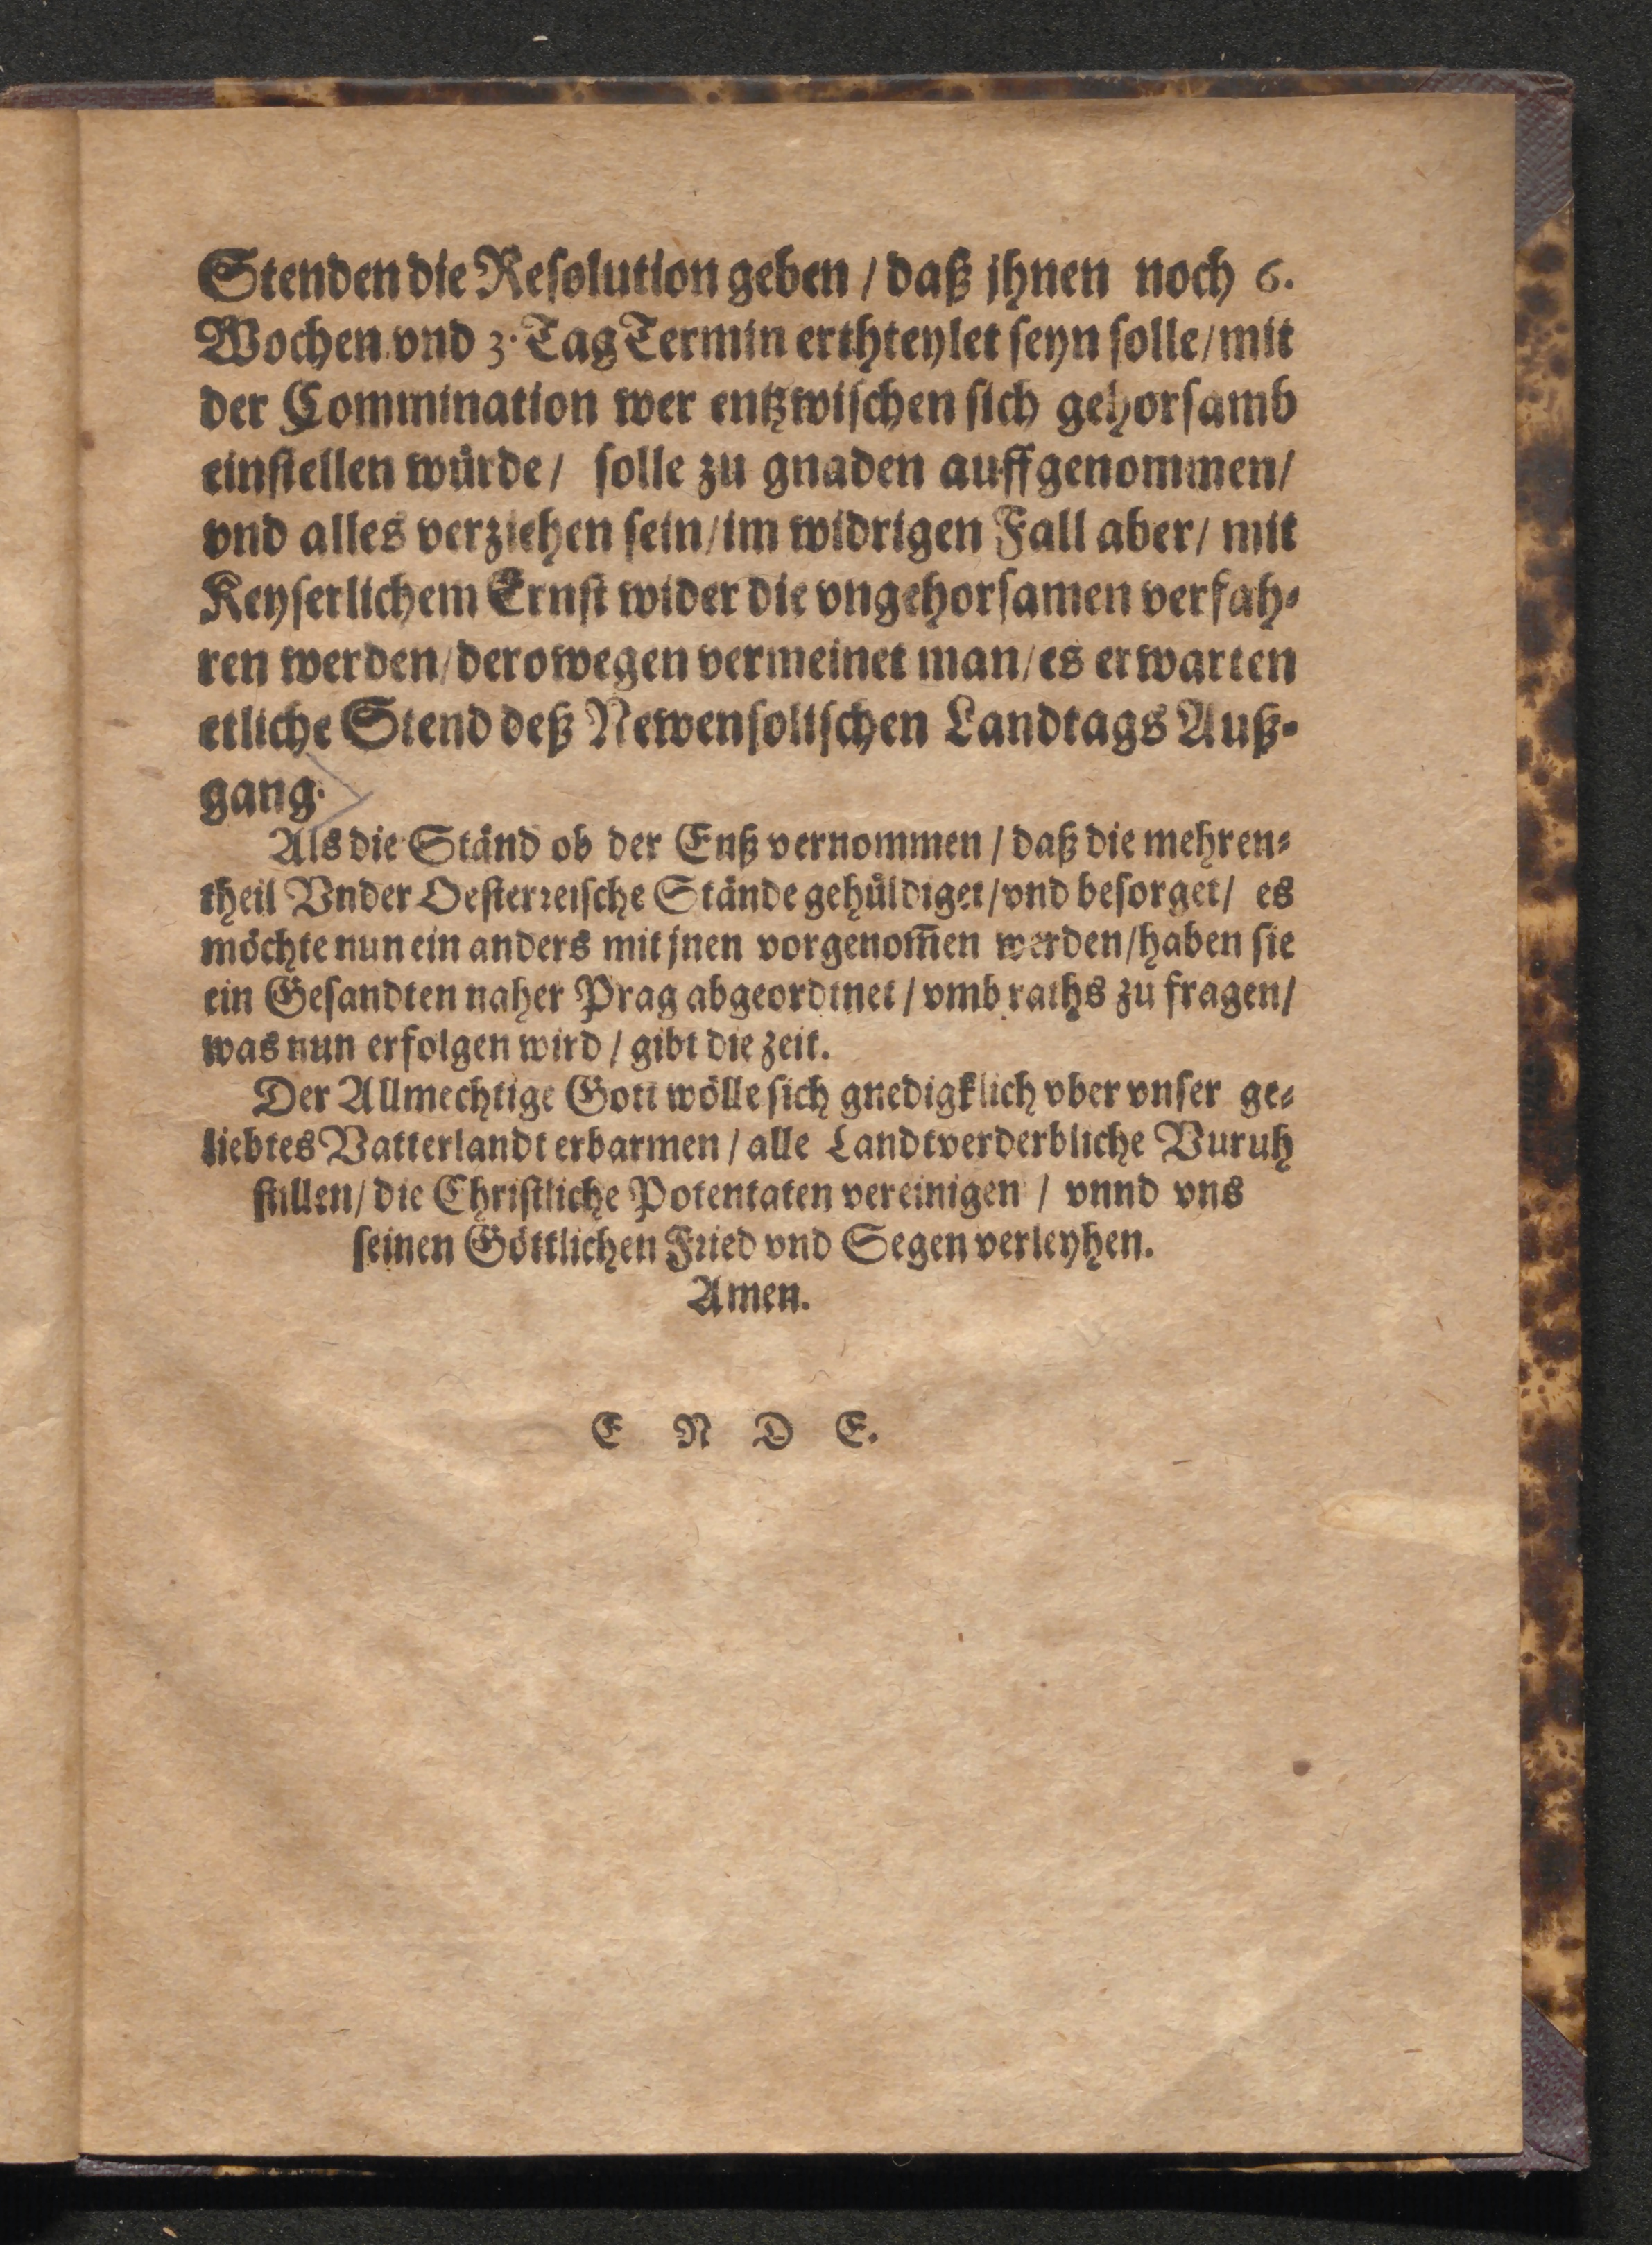 Stenden die Resolution geben / daß jhnen noch 6.
Wochen vnd 3. Tag Termin erthteylet seyn solle / mit
der Commination wer entzwischen sich gehorsamb
einstellen würde / solle zu gnaden auffgenommen /
vnd alles verziehen sein / im widrigen Fall aber / mit
Keyserlichem Ernst wider die vngehorsamen verfah-
ren werden / derowegen vermeinet man / es erwarten
etliche Stend deß Newensolischen Landtags Auß-
gang.
Als die Ständ ob der Enß vernommen / daß die mehren-
theil Vnder Oesterreische Stände gehüldiget / vnd besorget / es
möchte nun ein anders mit jnen vorgenom̃en werden / haben sie
ein Gesandten naher Prag abgeordtnet / vmb raths zu fragen /
was nun erfolgen wird / gibt die zeit.
Der Allmechtige Gott wölle sich gnedigklich vber vnser ge-
liebtes Vatterlandt erbarmen / alle Landtverderbliche Vuruh
stillen / die Christliche Potentaten vereinigen / vnnd vns
seinen Göttlichen Fried vnd Segen verleyhen.
Amen.
E N D E.